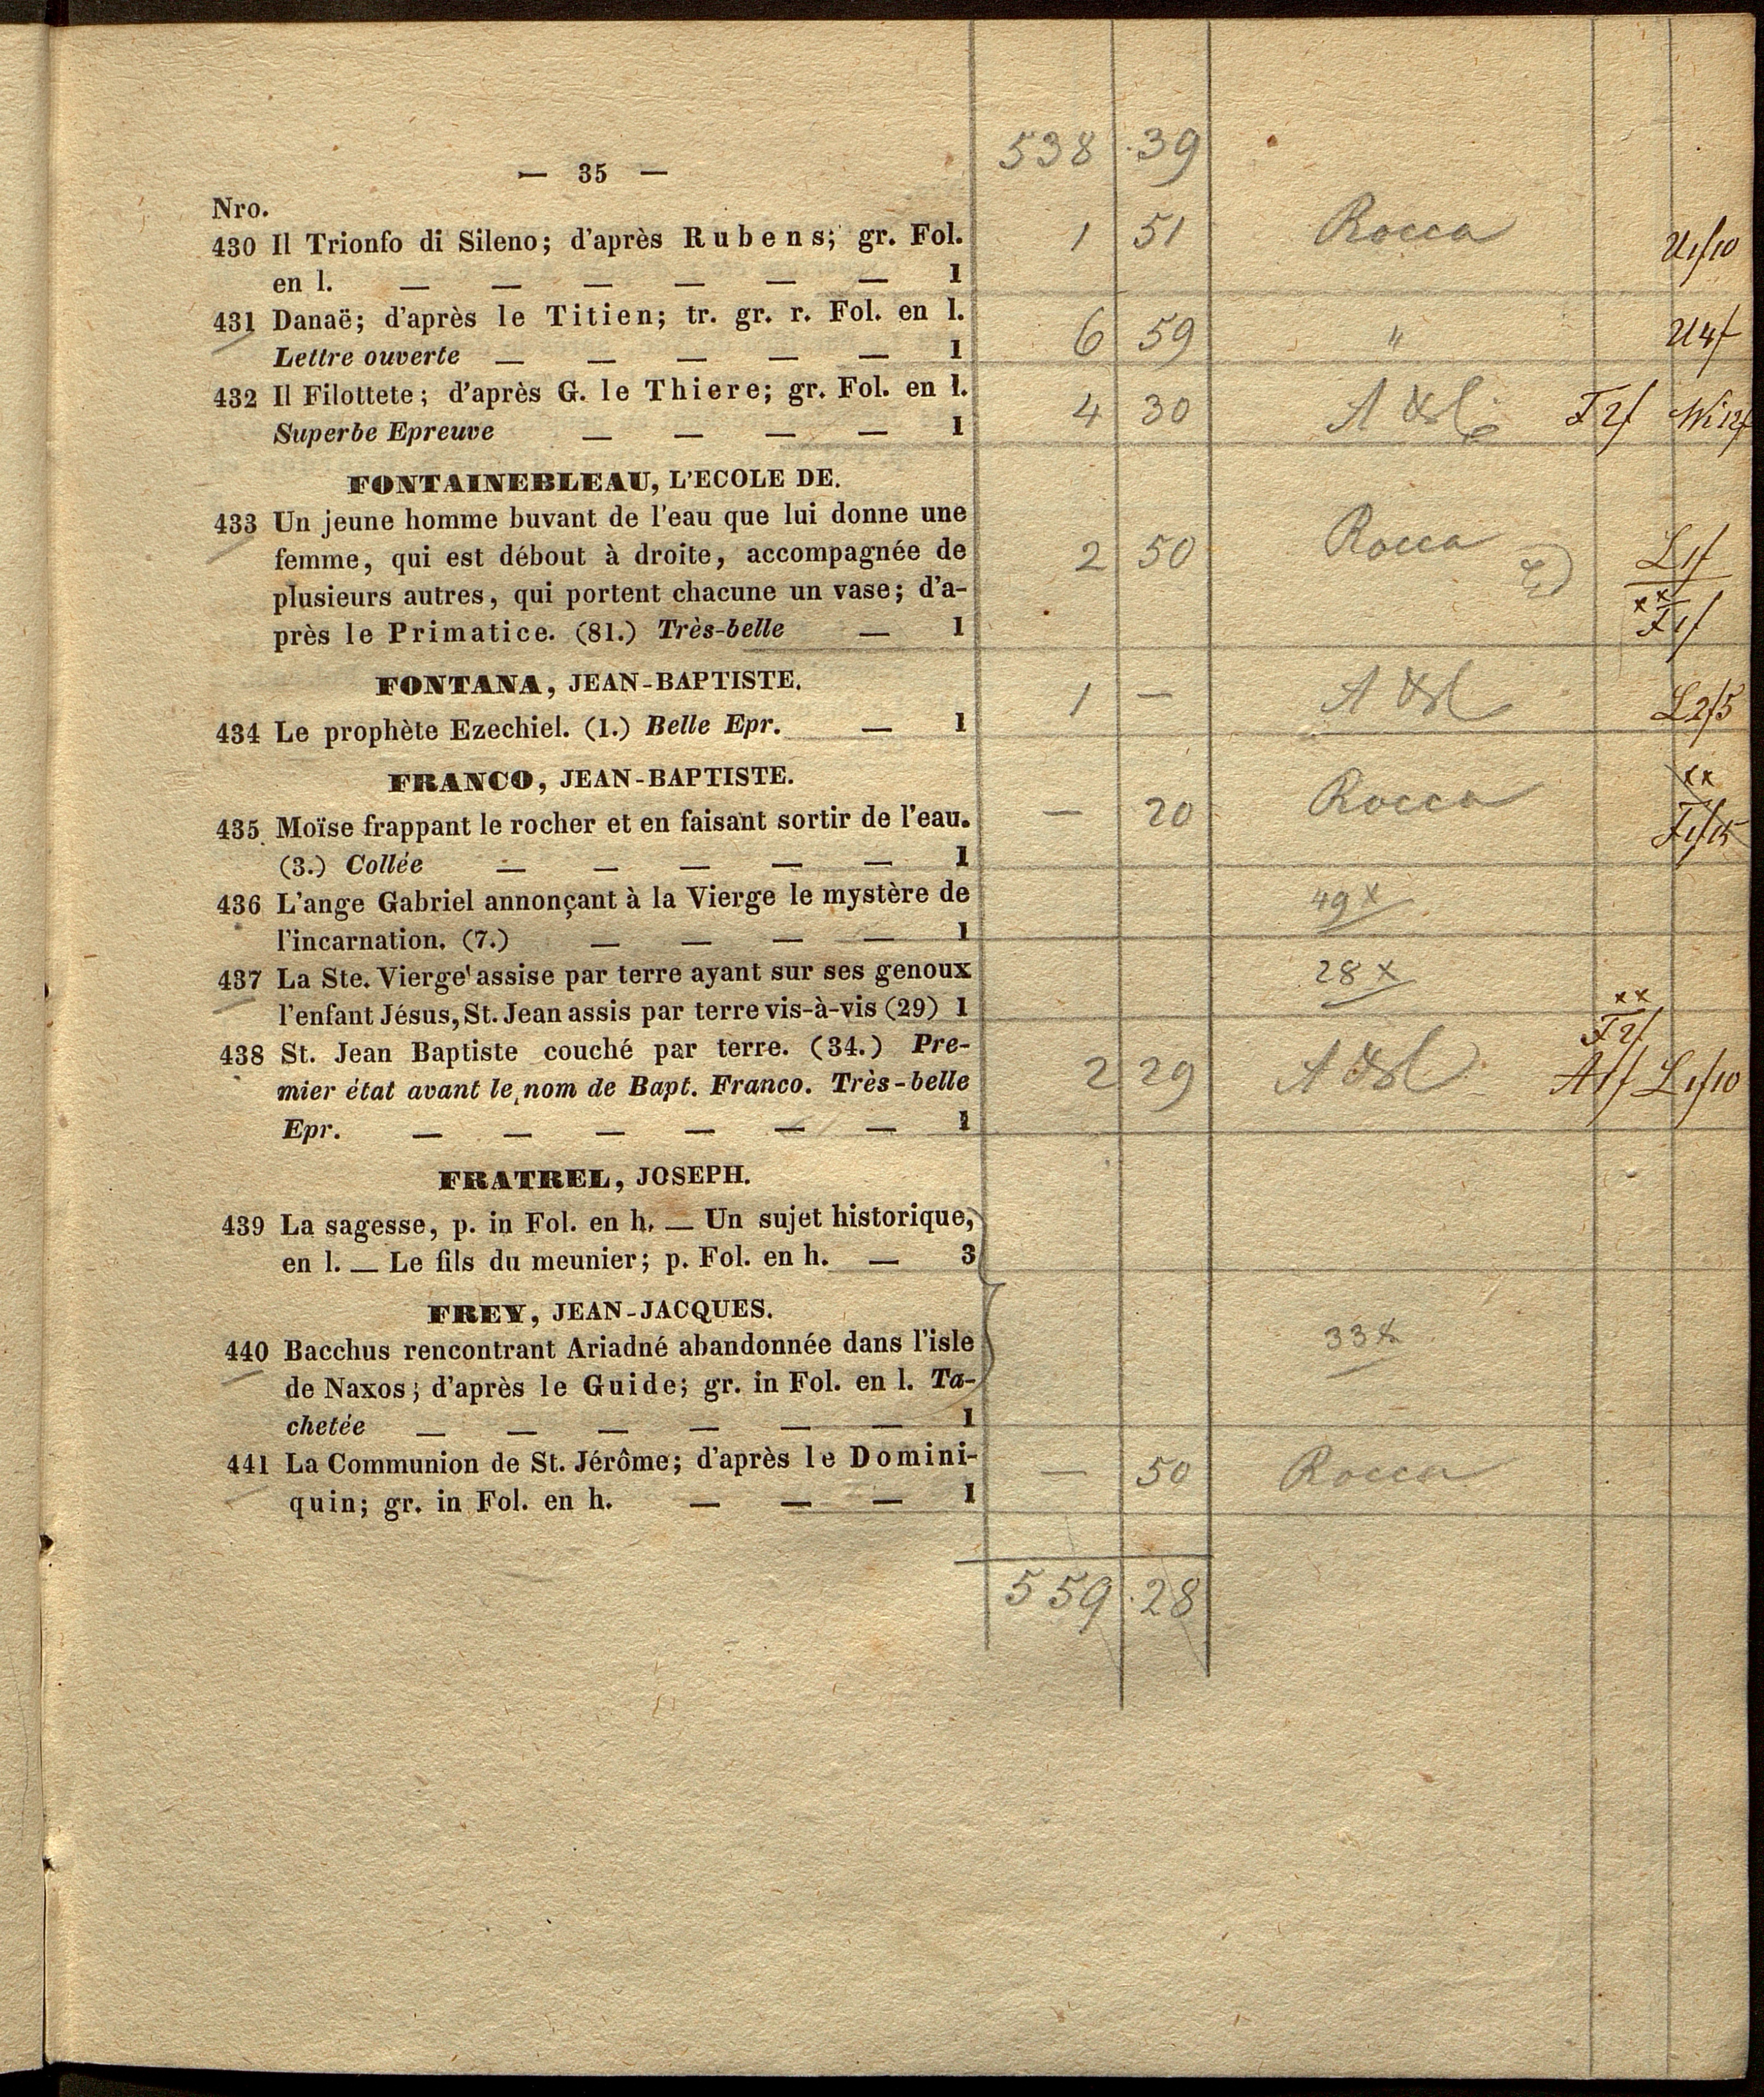 538 . 39
— 35 —
Nro.
430 Il Trionfo di Sileno; d'après Rubens; gr. Fol. 1 51 Rocca
en l. — — — — — — 1 U1f10
431 Danaë; d'après le Titien; tr. gr. r. Fol. en l.
Lettre ouverte — — — — — 1 6 59 " U4f
432 Il Filottete; d'après G. le Thiere; gr. Fol. en l.
Superbe Epreuve — — — — 1 4 30 F2f Wi12f
FONTAINEBLEAU, L'ECOLE DE.
433 Un jeune homme buvant de l'eau que lui donne une
femme, qui est débout à droite, accompagnée de 2 50 Rocca L1f
plusieurs autres, qui portent chacune un vase; d'a-
près le Primatice. (81.) Très-belle — 1 xx F1f
FONTANA, JEAN-BAPTISTE.
434 Le prophète Ezechiel. (1.) Belle Epr. — 1 1 — L2f5
FRANCO, JEAN-BAPTISTE.
435 Moïse frappant le rocher et en faisant sortir de l'eau. — 20 Rocca xx F1f15
(3.) Collée — — — — — 1
436 L'ange Gabriel annonçant à la Vierge le mystère de 49 x
l'incarnation. (7.) — — — — 1
437 La Ste. Vierge assise par terre ayant sur ses genoux 28 x
l'enfant Jésus, St. Jean assis par terre vis-à-vis (29) 1
438 St. Jean Baptiste couché par terre. (34.) Pre- xx F2f
mier état avant le nom de Bapt. Franco. Très-belle 2 29 A1f L1f10
Epr. — — — — — — 1
FRATREL, JOSEPH.
439 La sagesse, p. in Fol. en h. — Un sujet historique,
en l. — Le fils du meunier; p. Fol. en h. — 3
FREY, JEAN-JACQUES.
440 Bacchus rencontrant Ariadné abandonnée dans l'isle 33 x
de Naxos; d'après le Guide; gr. in Fol. en l. Ta-
chetée — — — — — — 1
441 La Communion de St. Jérôme; d'après le Domini- — 50 Rocca
quin; gr. in Fol. en h. — — — 1
559 . 28